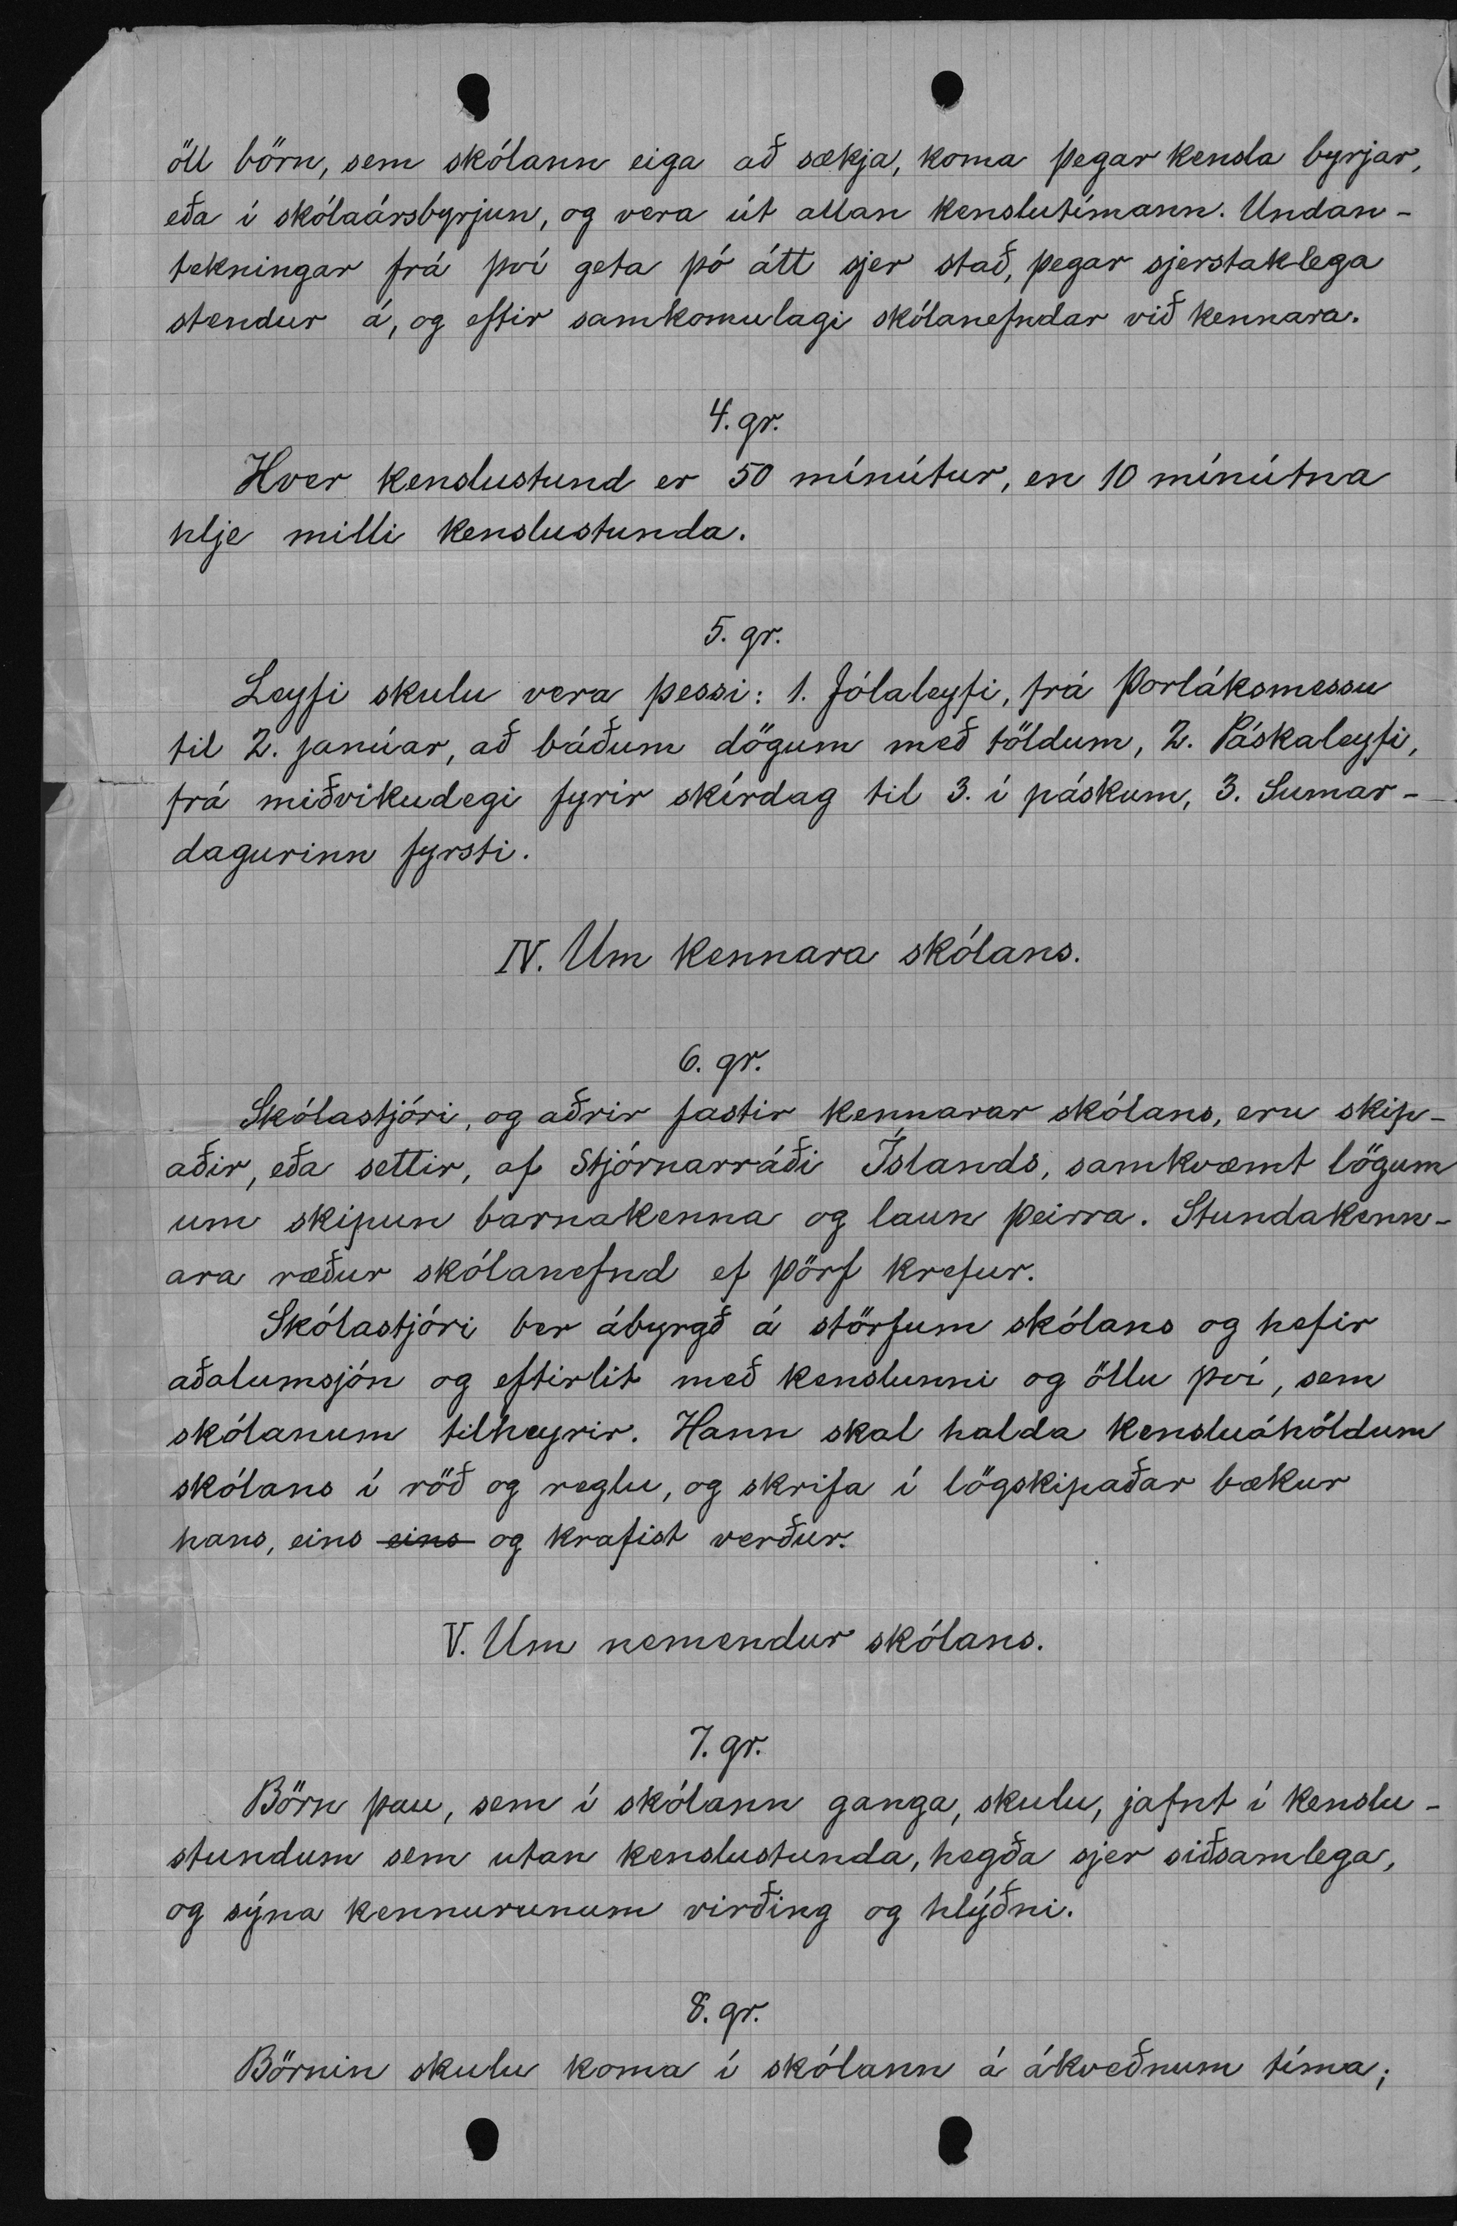 öll börn, sem skólann eiga að sækja, koma þegar kensla byrjar,
eða í skólaársbyrjun, og vera út allan kenslutímann. Undan-
tekningar frá því geta þó átt sjer stað, þegar sjerstaklega
stendur á, og eftir samkomulagi skólanefndar við kennara.
4. gr.
Hver kenslustund er 50 mínútur, en 10 mínútna
hlje milli kenslustunda.
5. gr.
Leyfi skulu vera þessi: 1. Jólaleyfi, frá Þorláksmessu
til 2. janúar, að báðum dögum með töldum, 2. Páskaleyfi,
frá miðvikudegi fyrir skírdag til 3. í páskum, 3. Sumar-
dagurinn fyrsti.
IV. Um kennara skólans.
6. gr.
Skólastjóri, og aðrir fastir kennarar skólans, eru skip-
aðir, eða settir, af Stjórnarráði Íslands, samkvæmt lögum
um skipun barnakenna og laun þeirra. Stundakenn-
ara ræður skólanefnd ef þörf krefur.
Skólastjóri ber ábyrgð á störfum skólans og hefir
aðalumsjón og eftirlit með kenslunni og öllu því, sem
skólanum tilheyrir. Hann skal halda kensluáhöldum
skólans í röð og reglu, og skrifa í lögskipaðar bækur
hans, eins eins og krafist verður.
V. Um nemendur skólans.
7. gr.
Börn þau, sem í skólann ganga, skulu, jafnt í kenslu-
stundum sem utan kenslustunda, hegða sjer siðsamlega,
og sýna kennurunum virðing og hlýðni.
8. gr.
Börnin skulu koma í skólann á ákveðnum tíma;